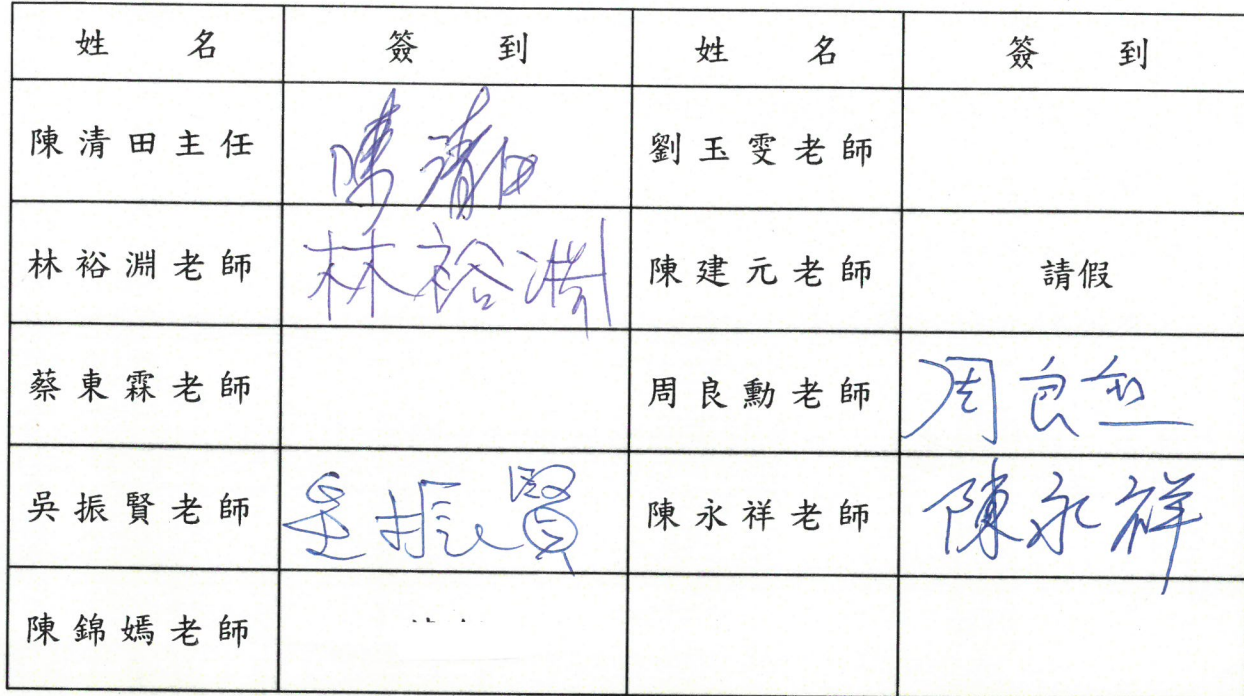 姓名 簽到 姓名 簽到
陳清田主任 陳清田 劉玉雯老師
林裕淵老師 林裕淵 陳建元老師 請假
蔡東霖老師 周良勳老師 周良勳
吳振賢老師 吳振賢 陳永祥老師 陳永祥
陳錦嫣老師